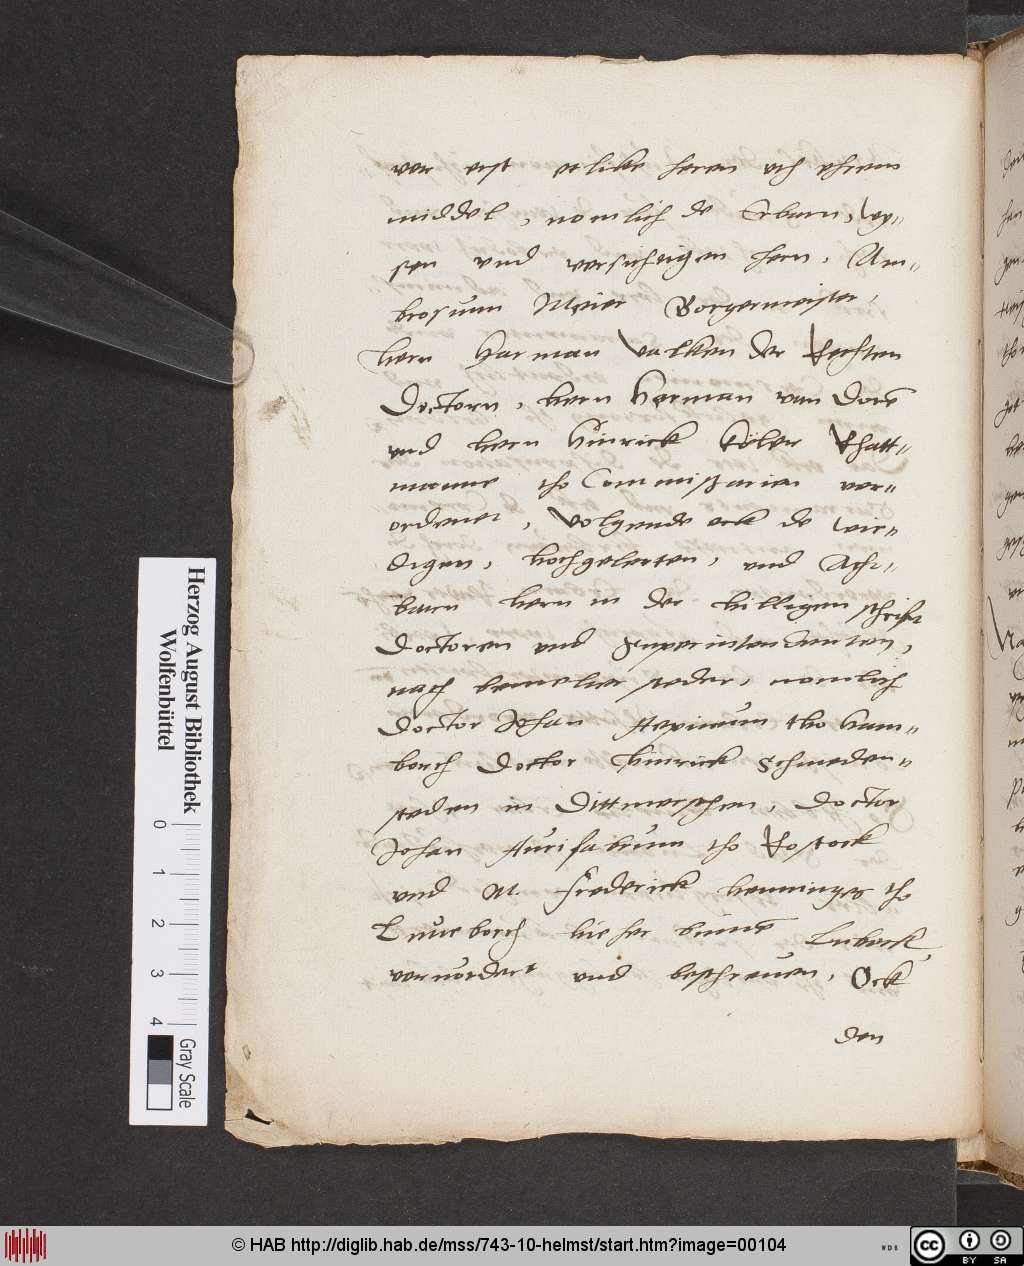 vor erst etlike heren uth ehrem
middel, nomlich de Erbarn, Wy-,
sen und versichtigen hern, Am-,
brosium Meier Borgermeister,
hern Harman Valken der Rechten
Doctorn, hern Herman van Dorē
und hern Hinrick Köler Rhatt-,
manne tho Commissarien ver-,
ordenet, Volgende ock de wir-,
digen, hochgelerten, und Acht-,
barn hern in der hilligen schrift
Doctoren und Superintendenten,
nach benenelter steder, nomlich
Doctor Johan Aepinum tho Ham-,
borch Doctor Hinrick Schmeden-,
steden in Dittmerschen, Doctor
Johan Aurifabrum tho Rostock
und M. Frederick Henninges tho
Luneborch hieher binnē Lubeck,
vorvördert und beschreven, Ock
den
Herzog August Bibliothek
Wolfenbüttel
0 1 2 3 4
Gray Scale
© HAB http://diglib.hab.de/mss/743-10-helmst/start.htm?image=00104
cc BY SA